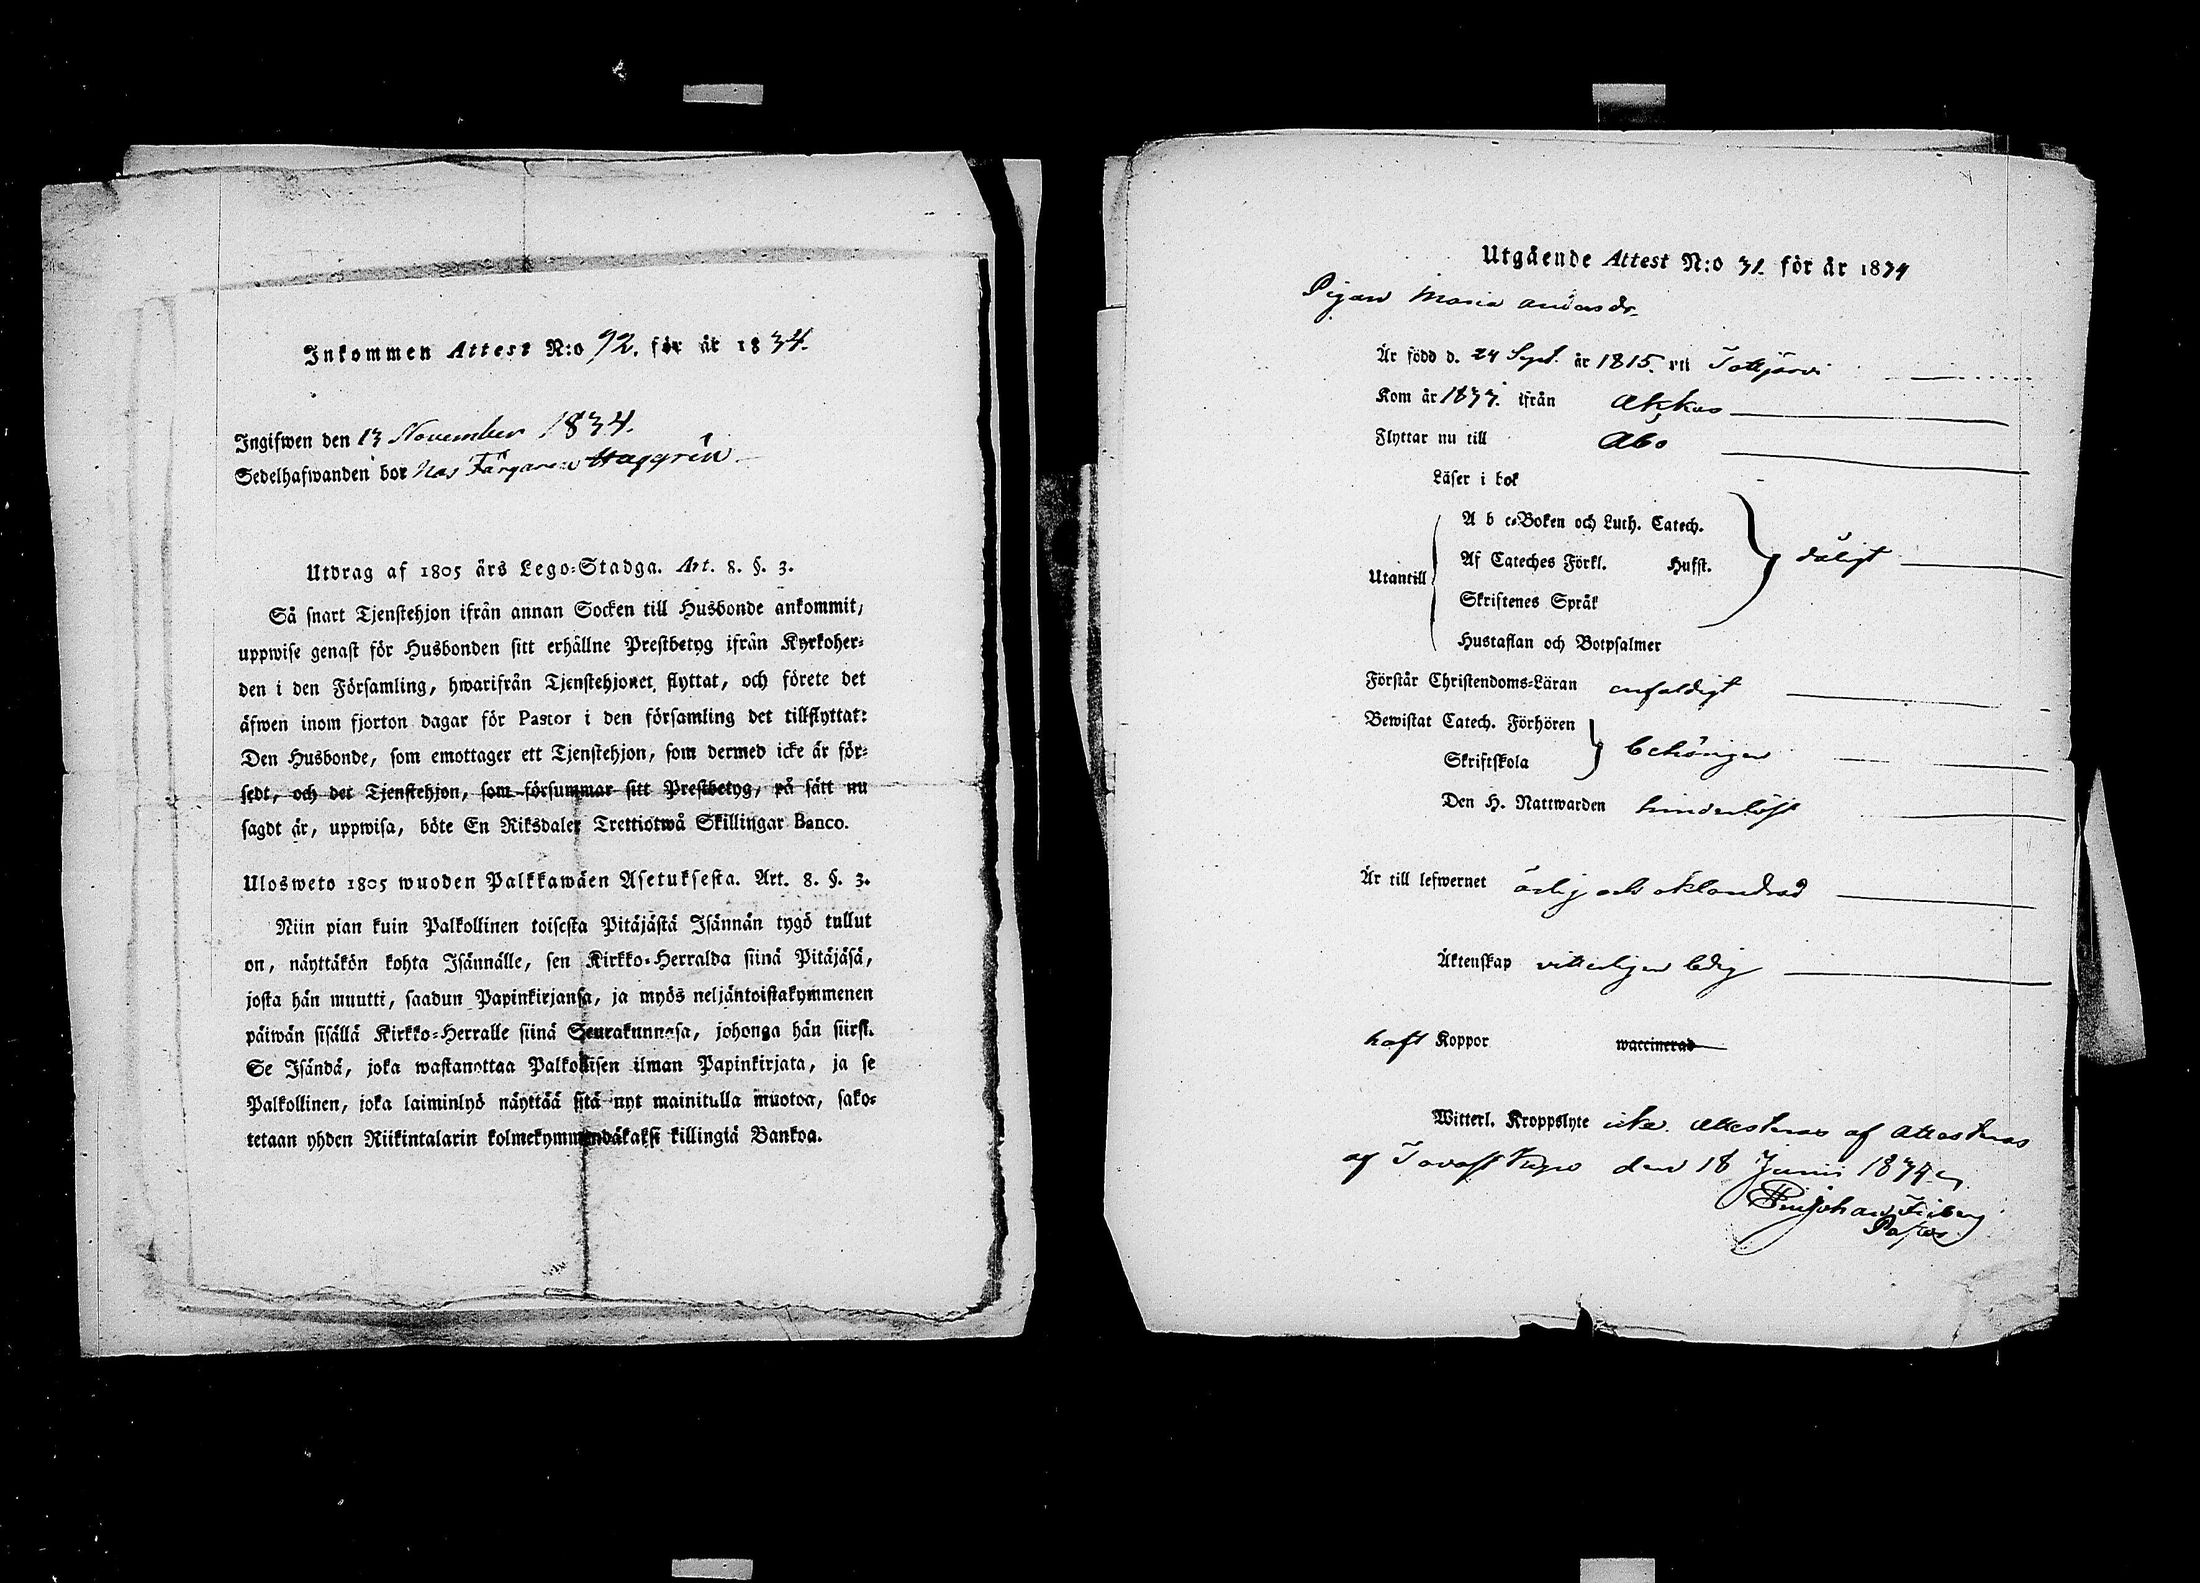 Inkommen Attest N:o 92. för år 1834.
Ingifwen den 13 November 1834.
Sedelhafwanden bor hos Färgaren Häggrén
Utdrag af 1805 års Lego-Stadga. Art. 8. §. 3.
Så snart Tjenstehjon ifrån annan Socken till Husbonde ankommit,
uppwise genast för Husbonden sitt erhållne Prestbetyg ifrån Kyrkoher-
den i den Församling, hwarifrån Tjenstehjonet flyttat, och förete det
äfwen inom fjorton dagar för Pastor i den församling det tillflyttat:
Den Husbonde, som emottager ett Tjenstehjon, som dermed icke är för-
sedt, och det Tjenstehjon, som försummar sitt Prestbetyg, på sätt nu
sagdt är, uppwisa, böte En Riksdaler Trettiotwå Skillingar Banco.
Ulosweto 1805 wuoden Palkkawäen Asetuksesta. Art. 8. §. 3.
Niin pian kuin Palkollinen toisesta Pitäjästä Isännän tygö tullut
on, näyttäkön kohta Isännälle, sen Kirkko-Herralda siinä Pitäjäsä,
josta hän muutti, saadun Papinkirjansa, ja myös neljäntoistakymmenen
päiwän sisällä Kirkko-Herralle siinä Seurakunnasa, johonga hän siirst.
Se Isändä, joka wastanottaa Palkollisen ilman Papinkirjata, ja se
Palkollinen, joka laiminlyö näyttää sitä nyt mainitulla muotoa, sako-
tetaan yhden Riikintalarin kolmekymmendäkaksi killingiä Bankoa.
Utgående Attest N:o 31. för år 1834
Pigan Maria Andersdr.
Är född d. 24 Sept. år 1815. uti Tottjärvi
Kom år 1833. ifrån Akkas
Flyttar nu till Åbo
Läser i bok
A b c-Boken och Luth. Catech.
Af Cateches Förkl. Hufst.
Utantill dåligt
Skriftenes Språk
Hustaflan och Botpsalmer
Förstår Christendoms-Läran enfaldigt
Bewistat Catech. Förhören
behörigen
Skriftskola
Den H. Nattwarden hinderlöst
Är till lefwernet ärlig och oklandrad
Äktenskap vitterligen ledig
haft Koppor waccinerad
Witterl. Kroppslyte icke. Attesteras af Attesteras
af Tavast Kyro den 18 Junii 1834
Johan Friberg
Pastor